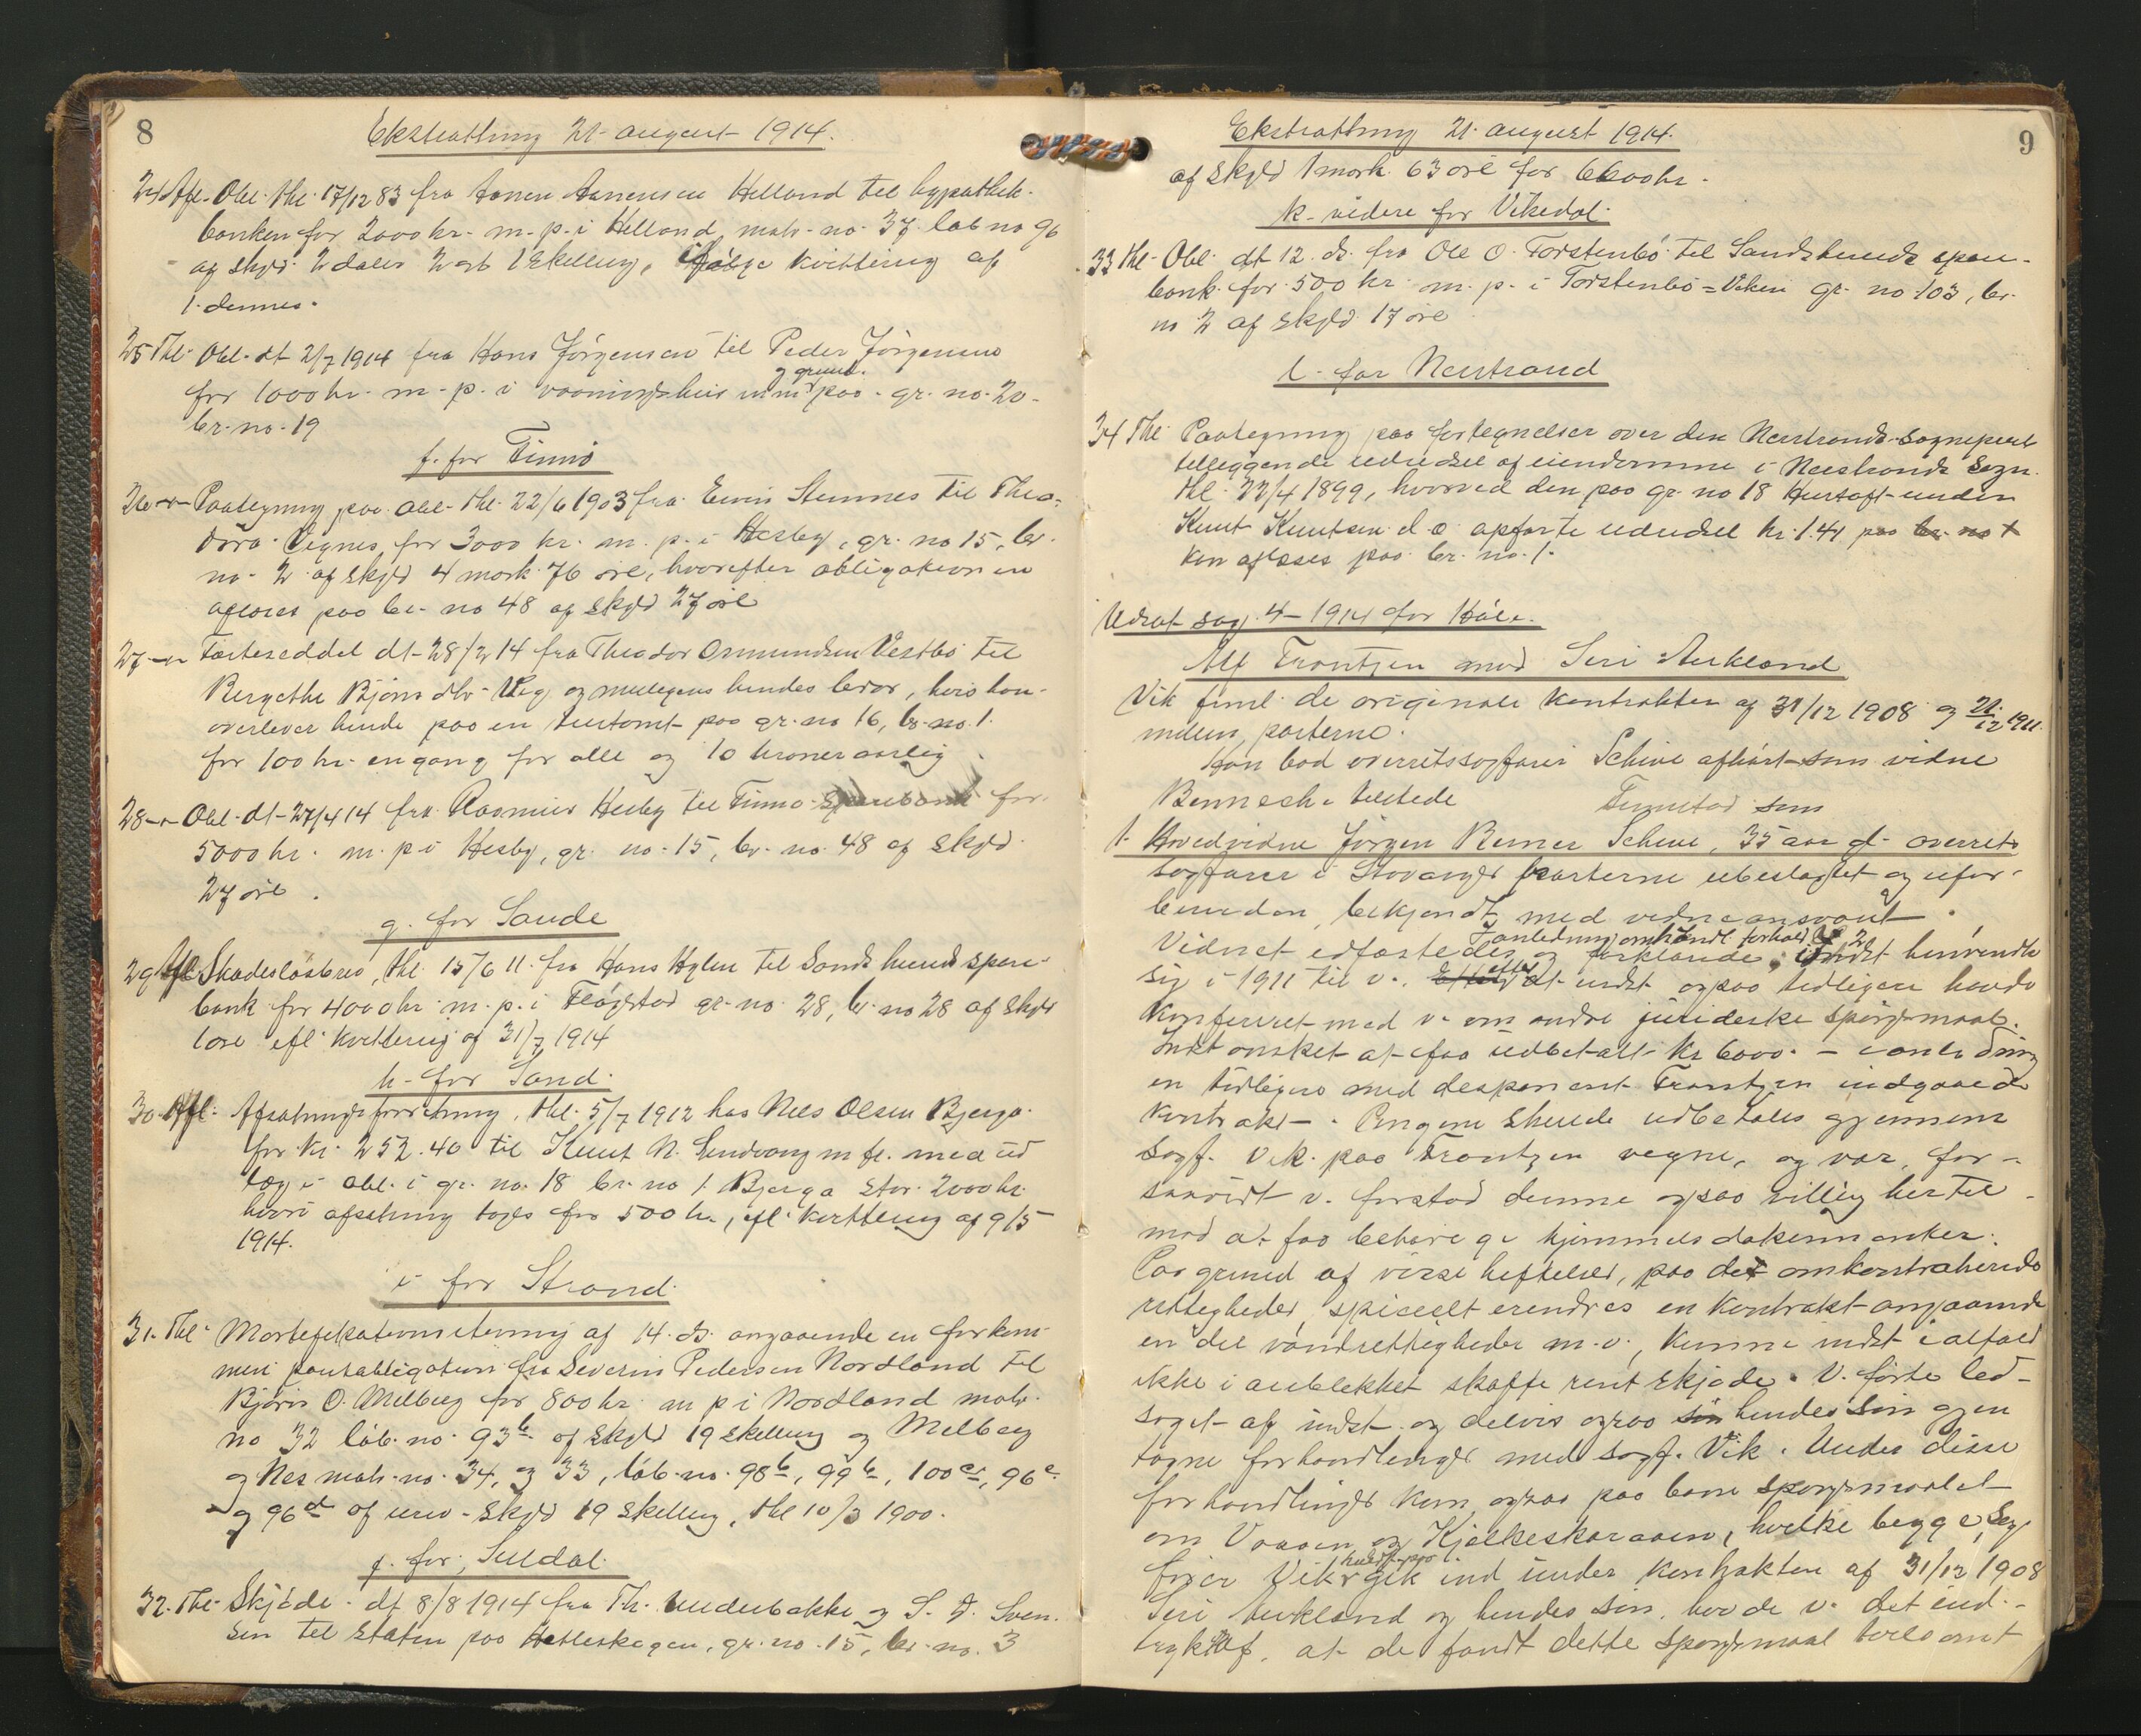 8
Ekstratting 21 august 1914.
24 Afl. Obl. thl. 17/12 83 fra Aanen Aanensen Helland til hypothek-
banken for 2000 kr. m. p. i Helland, matr. no. 37 løb no 96
af skyld 2 daler 2 ort 1 skilling, ifølge kvittering af
1. dennes.
25 Thl. Obl. dt 2/7 1914 fra Hans Jørgensen til Peder Jørgensen
og grund.
for 1000 kr. m. p. i vaaningshus paa gr. no. 20.
br. no. 19
f. for Finnø
26 -"- Paategning paa obl. thl. 22/6 1903 fra Stennes til Theo-
dora Vignes for 3000 kr. m. p. i Hesby, gr. no 15, br.
no. 2 af skyld 4 mark 76 øre, hvorefter obligationen
afløses paa br. no 48 af skyld 27 øre
27 -"- Fæsteseddel dt 28/2 14 fra Theodor Osmundsen Vestbø til
Bergethe Bjørnsdtr Veg og muligens hendes bror, hvis han
overlever hende paa en tuftomt paa gr. no 16, br. no. 1.
for 100 kr. engang for alle og 10 kroner aarlig
28 -"- Obl. dt 27/4 14 fra Rasmus Hesby til Finnø sparebank for
5000 kr. m. p i Hesby, gr. no. 15, br. no. 48 af skyld
27 øre.
g. for Saude
29 Afl Skadesløsbrev, thl. 15/6 11. fra Hans Hylen til Sands herreds spare-
bank for 4000 kr. m. p. i Fløgstad gr. no. 28, br. no 28 af skyld
øre efl. kvittering af 31/7 1914
h. for Sand.
30. Afl. Afsetningsforretning, thl. 5/7 1912 hos Nils Olsen Bjerga
for kr. 252.40 til Knut N. Sendvang m fl. med ud
læg i obl. i gr. no. 18 br. no 1 Bjerga stor 2000 kr.
hvori afsetning toges for 500 kr., efl. kvittering af 9/5
1914.
i for Strand.
31. Thl. Mortifikationsstevning af 14. ds. angaaende en forkom-
men pantobligation fra Severin Pedersen Nordland til
Bjørn O. Melberg for 800 kr. m p i Nordland matr.
no 32 løb. no. 93b af skyld 19 skilling og Melberg
og Nes matr. no. 34, og 33, løb. no. 98b, 99b, 100c, 96c
og 96d af urev. skyld 19 skilling, thl 10/3 1900.
j. for Suldal.
32. Thl. Skjøde dt 8/8 1914 fra Th. Underbakke og S. J. Sven-
sen til staten paa Hetleskogen, gr. no. 15, br. no. 3
9
Ekstratting 21 august 1914.
af skyld 1 mark 63 øre for 6600 kr.
k. videre for Vikedal.
33 thl. Obl. dt 12. ds. fra Ole O. Torstenbø til Sandsherreds spare-
bank for 500 kr. m. p. i Torstenbø = Viken gr. no 103, br.
no 2 af skyld 17 øre
l. for Nerstrand
34 Thl. Paategning paa fortegnelser over den Nerstrands sogneprest
tilliggende udredsel af eiendomme i Nerstrands Sogn
thl. 22/4 1899, hvorved den paa gr. no 18 Hustoft under
Knut Knutsen d. o. opførte udredsel kr. 1.41 paa br. no 1
kun afløses paa br. no. 1.
Udsat sag. 4 - 1914 for Høle.
Alf Frantzen mod Seri Aukland
Vik freml. de originale kontrakter af 31/12 1908 og 21/12 1911.
mellem parterne.
Han bad overretssagfører Schive afhørt som vidne
Bennech tilstede
som
1. Hovedvidne Jørgen Berner Schive, 35 aar g. overrets
sagfører i Stavanger parterne ubeslægtet og ufor-
benedon, bekjendt med vidneansvaret.
i anledning omhandl. forhold
Vidnet edfæstedes og forklarede: indst. henvendte
sig i 1911 til v. efter at indst. ogsaa tidligere havde
konfereret med v. om andre juridiske spørgsmaal.
Indst ønsket at faa udbetalt kr 6000.- i anledning
en tidligere med disponent Frantzen indgaaede
kontrakt. Pengene skulde udbetales gjennem
sagf. Vik. paa Frantzen vegne, og var, for-
saavidt v. forstod denne ogsaa villig hertil
mod at faa behørige hjemmelsdokumenter.
Paa grund af visse heftelser, paa de omkontraherede
rettigheder, specielt erindres en kontrakt angaaende
en del vandrettigheder m. v., kunne indst ialfald
ikke i øieblikket skaffe rent skjøde. V. førte led-
saget af indst. og delvis ogsaa hendes søn gjen
tagne forhandlinger med sagf. Vik. Under disse
forhandlinger kom ogsaa paa bane spørgsmaalet
om Vaagen og Kjelkeskaraaen, hvilke begge Sag-
fører Vik gik ind under kontrakten af 31/12 1908
Seri Aukland og hendes søn, havde v. det ind-
tryk af, at de fandt dette spørgsmaal tvilsomt